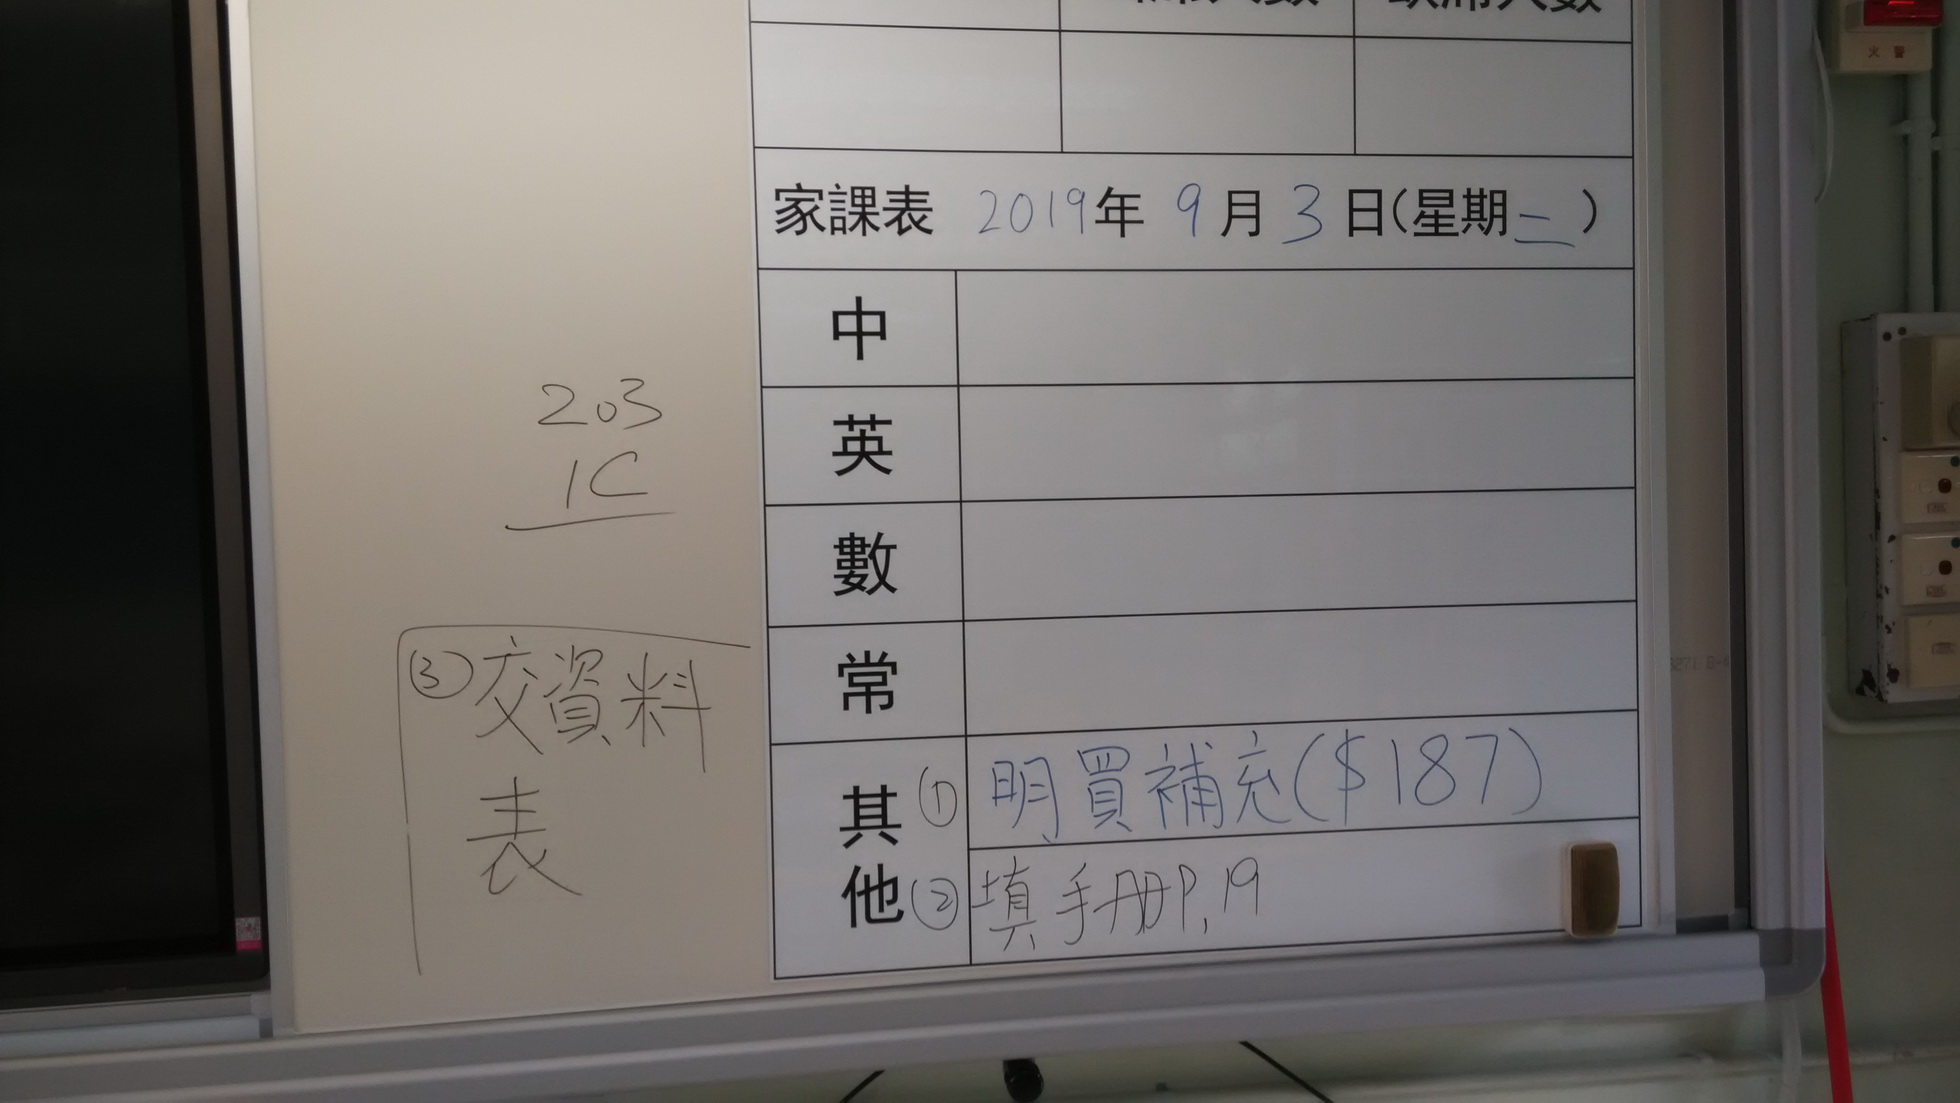 火警
家課表 2019年 9月 3日(星期二)
中
英
數
常
其他
① 明買補充($187)
② 填手册P.19
203
1C
③ 交資料
表